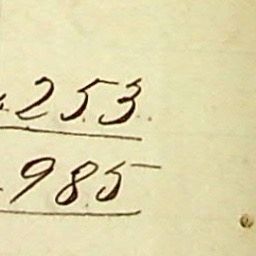 253.
985